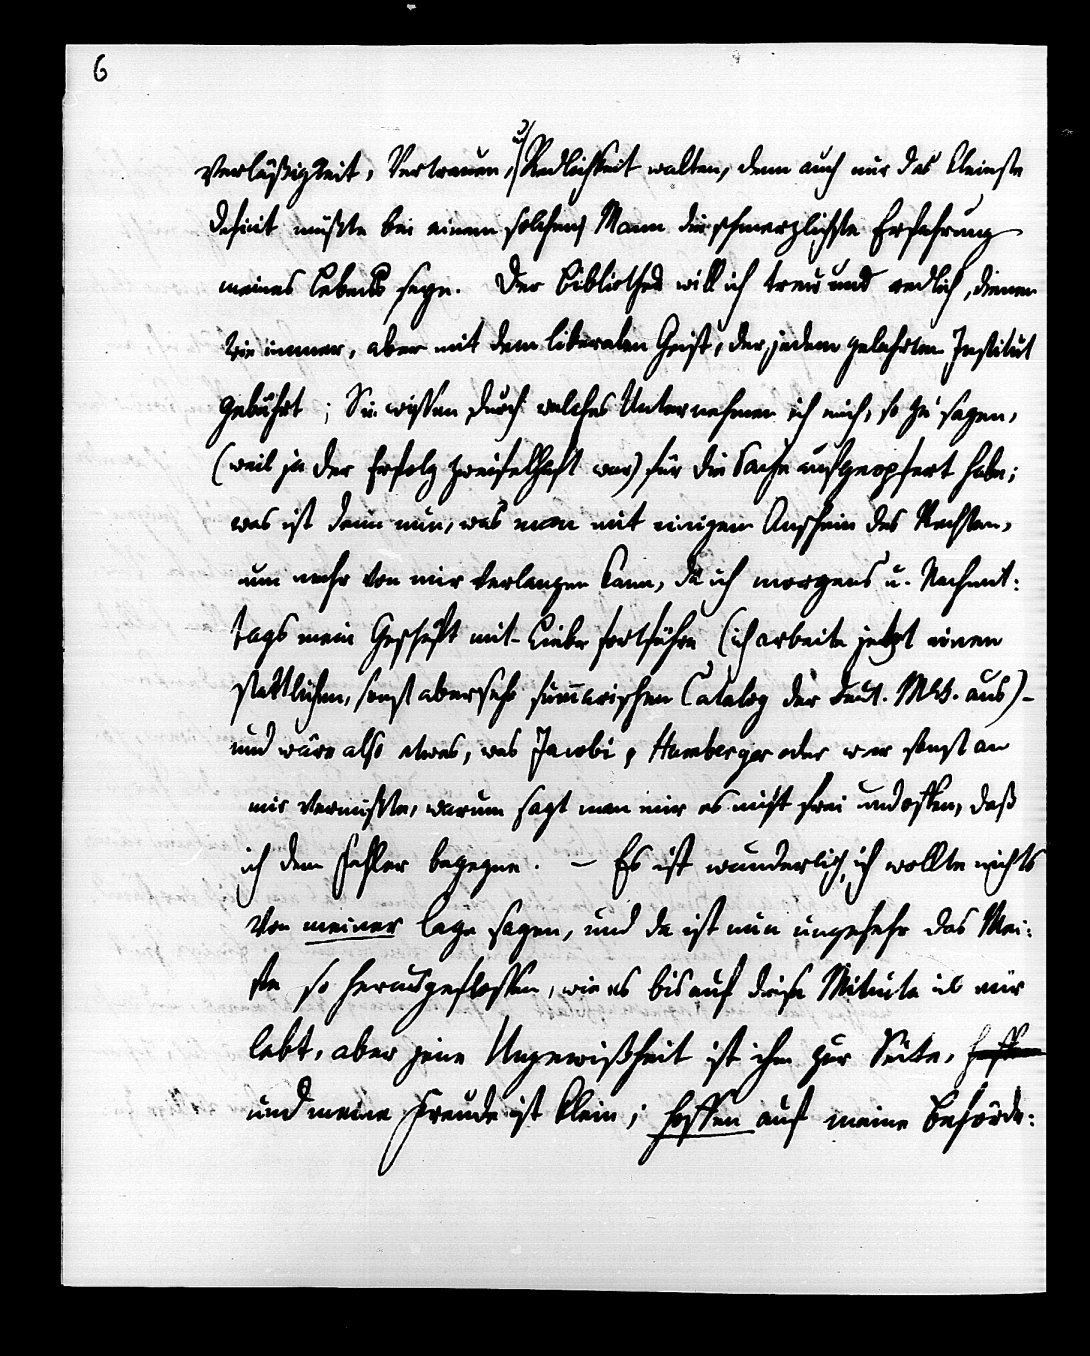 6
Verläßigkeit, Vertrauen, u. Redlichkeit walten, denn auch nur das kleinste
deficit müßte bei einem solchen Mann die schmerzlichste Erfahrung
meines Lebens seyn. Der Bibliothek will ich treu und redlich dienen
wie immer, aber mit dem liberalen Geist, der jedem gelehrten Institut
gebührt; Sie wissen durch welches Unternehmen ich mich, so zu sagen,
(weil ja der Erfolg zweifelhaft war) für die Sache aufgeopfert habe;
was ist denn nun, was man mit einigem Anschein des Rechten,
um mehr von mir verlangen kann, da ich morgens u. Nachmit:
tags mein Geschäft mit Liebe fortführe (ich arbeite jetzt einen
stattlichen, sonst aber sehr sum̅arischen Catalog der deut. Mss. aus) –
und wäre also etwas, was Jacobi, Hamberger oder wer sonst an
mir vermißte, warum sagt man mir es nicht frei und offen, daß
ich dem Fehler begegne. – Es ist wunderlich, ich wollte nichts
von meiner Lage sagen, und da ist nun ungefehr das Mei:
ste so herausgeflossen, wie es bis auf diese Minute in mir
lebt, aber jene Ungewißheit ist ihm zur Seite,
und meine Freude ist klein; hoffen auf meine Beförde: